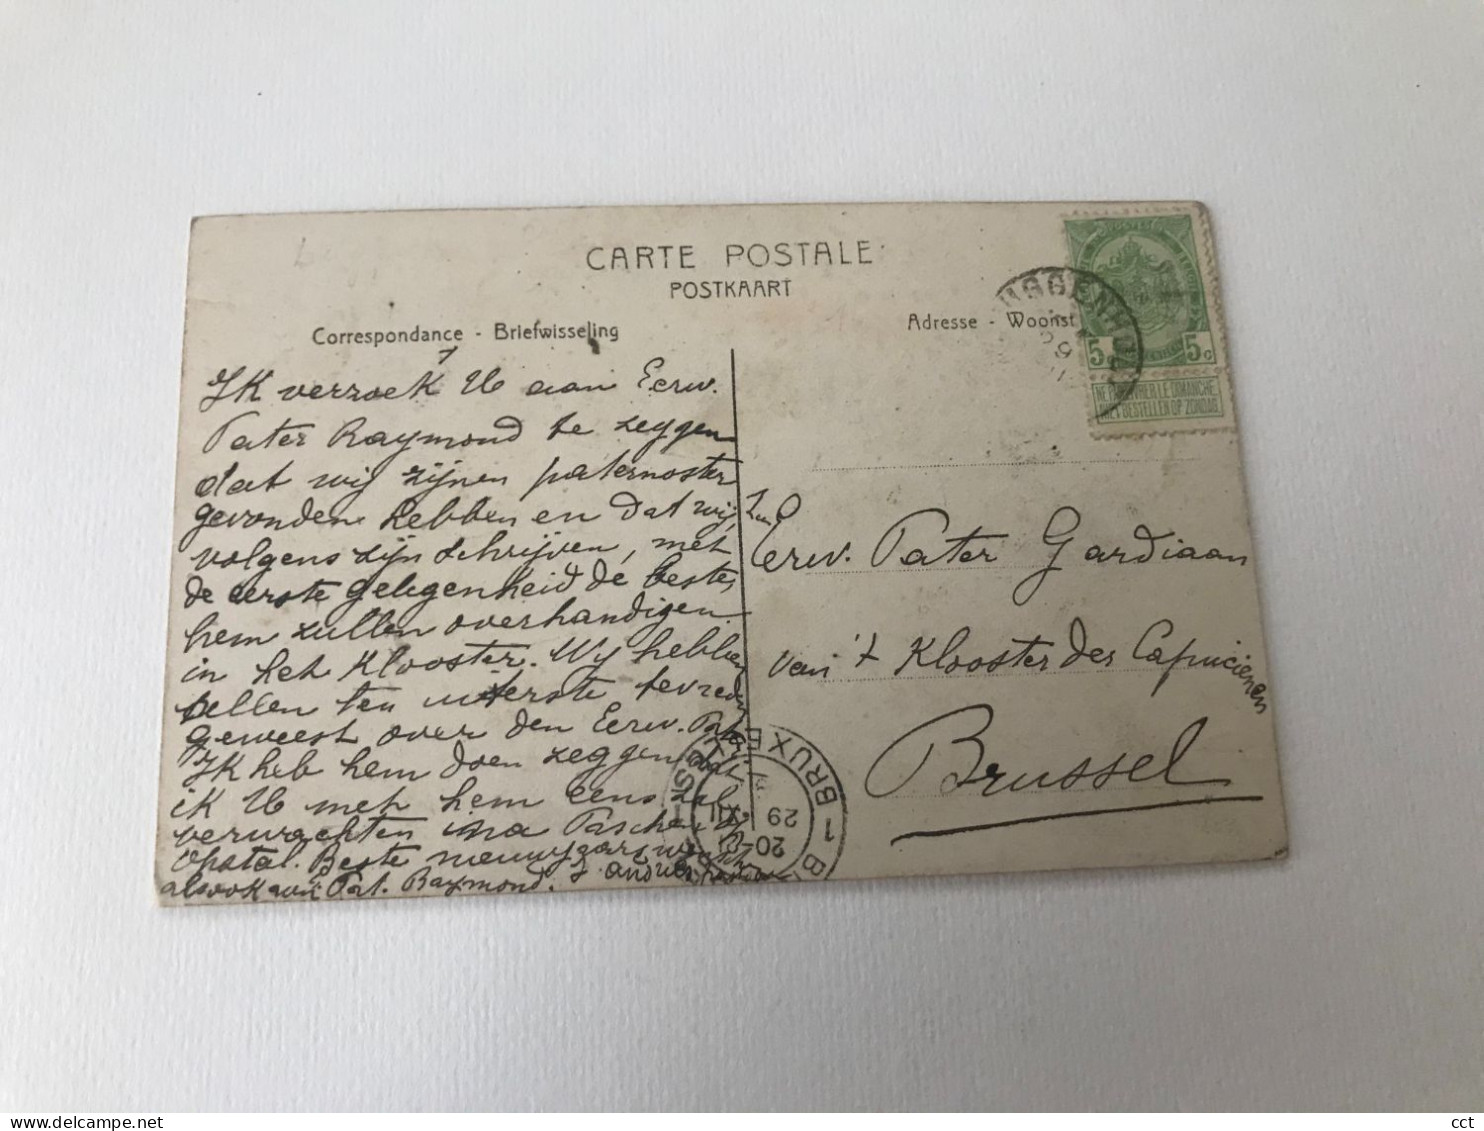 CARTE POSTALE
POSTKAART
Correspondance - Briefwisseling
Adresse - Woonst
5c 5c
NE PAS LIVRER LE DIMANCHE
NIET BESTELLEN OP ZONDAG
IK verzoek U aan Eerw.
Pater Raymond te zeggen
dat wij zijnen paternoster
gevonden hebben en dat wij,
volgens zijn schrijven, met
de eerste gelegenheid de beste,
hem zullen overhandigen
in het Klooster. Wij hebben
tellen ten uiterste tevreden
geweest over den Eerw. Pater
IK heb hem doen zeggen dat
ik U met hem eens zal
verwachten na Paschen
Opstal. Beste nieuwjaarswensch
alsook aan Pat. Raymond. & andere
Eerw. Pater Gardiaan
van 't Klooster der Capucienen
Brussel
BRUXE
1 B
20-
XII
29
cct